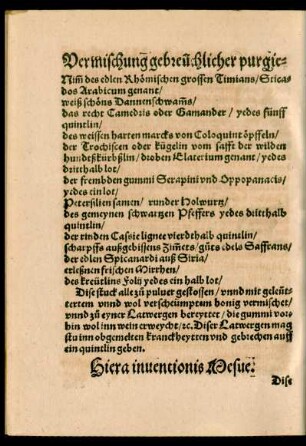 Vermischung gebreüchlicher purgie⸗
Nim̃ des edlen Rhömischen grossen Timians/ Sticas
dos Arabicum genant/
weiß schöns Dannenschwam̃s/
das recht Camedris oder Gamander / yedes fünff
quintlin/
des weissen harten marcks von Coloquint öpffeln/
der Trochiscen oder kügelin vom safft der wilden
hundeßkürbßlin/ droben Elaterium genant/ yedes
dritthalb lot/
der frembden gummi Serapini vnd Oppopanacis/
yedes ein lot/
Petersilien samen/ runder Holwurtz/
des gemeynen schwartzen Pfeffers yedes dritthalb
quintlin/
der rinden Cassie lignee vierdthalb quintlin/
scharpffs außgebissens Zim̃ets/ gůts edels Saffrans/
der edlen Spicanardi auß Siria/
erleßnen frischen Mirrhen/
des kreütlins Folij yedes ein halb lot/
Dise stuck alle zů puluer gestossen/ vnnd mit geleüt⸗
tertem vnnd wol verscheumptem honig vermischet/
vnnd zů eyner Latwergen bereyttet/ die gummi vor⸗
hin wol inn wein erweycht/ ꝛc. Diser Latwergen mag
stu inn obgemelten kranckheytten vnd gebrechen auff
ein quintlin geben.
Hiera inuentionis Mesue.
Dise